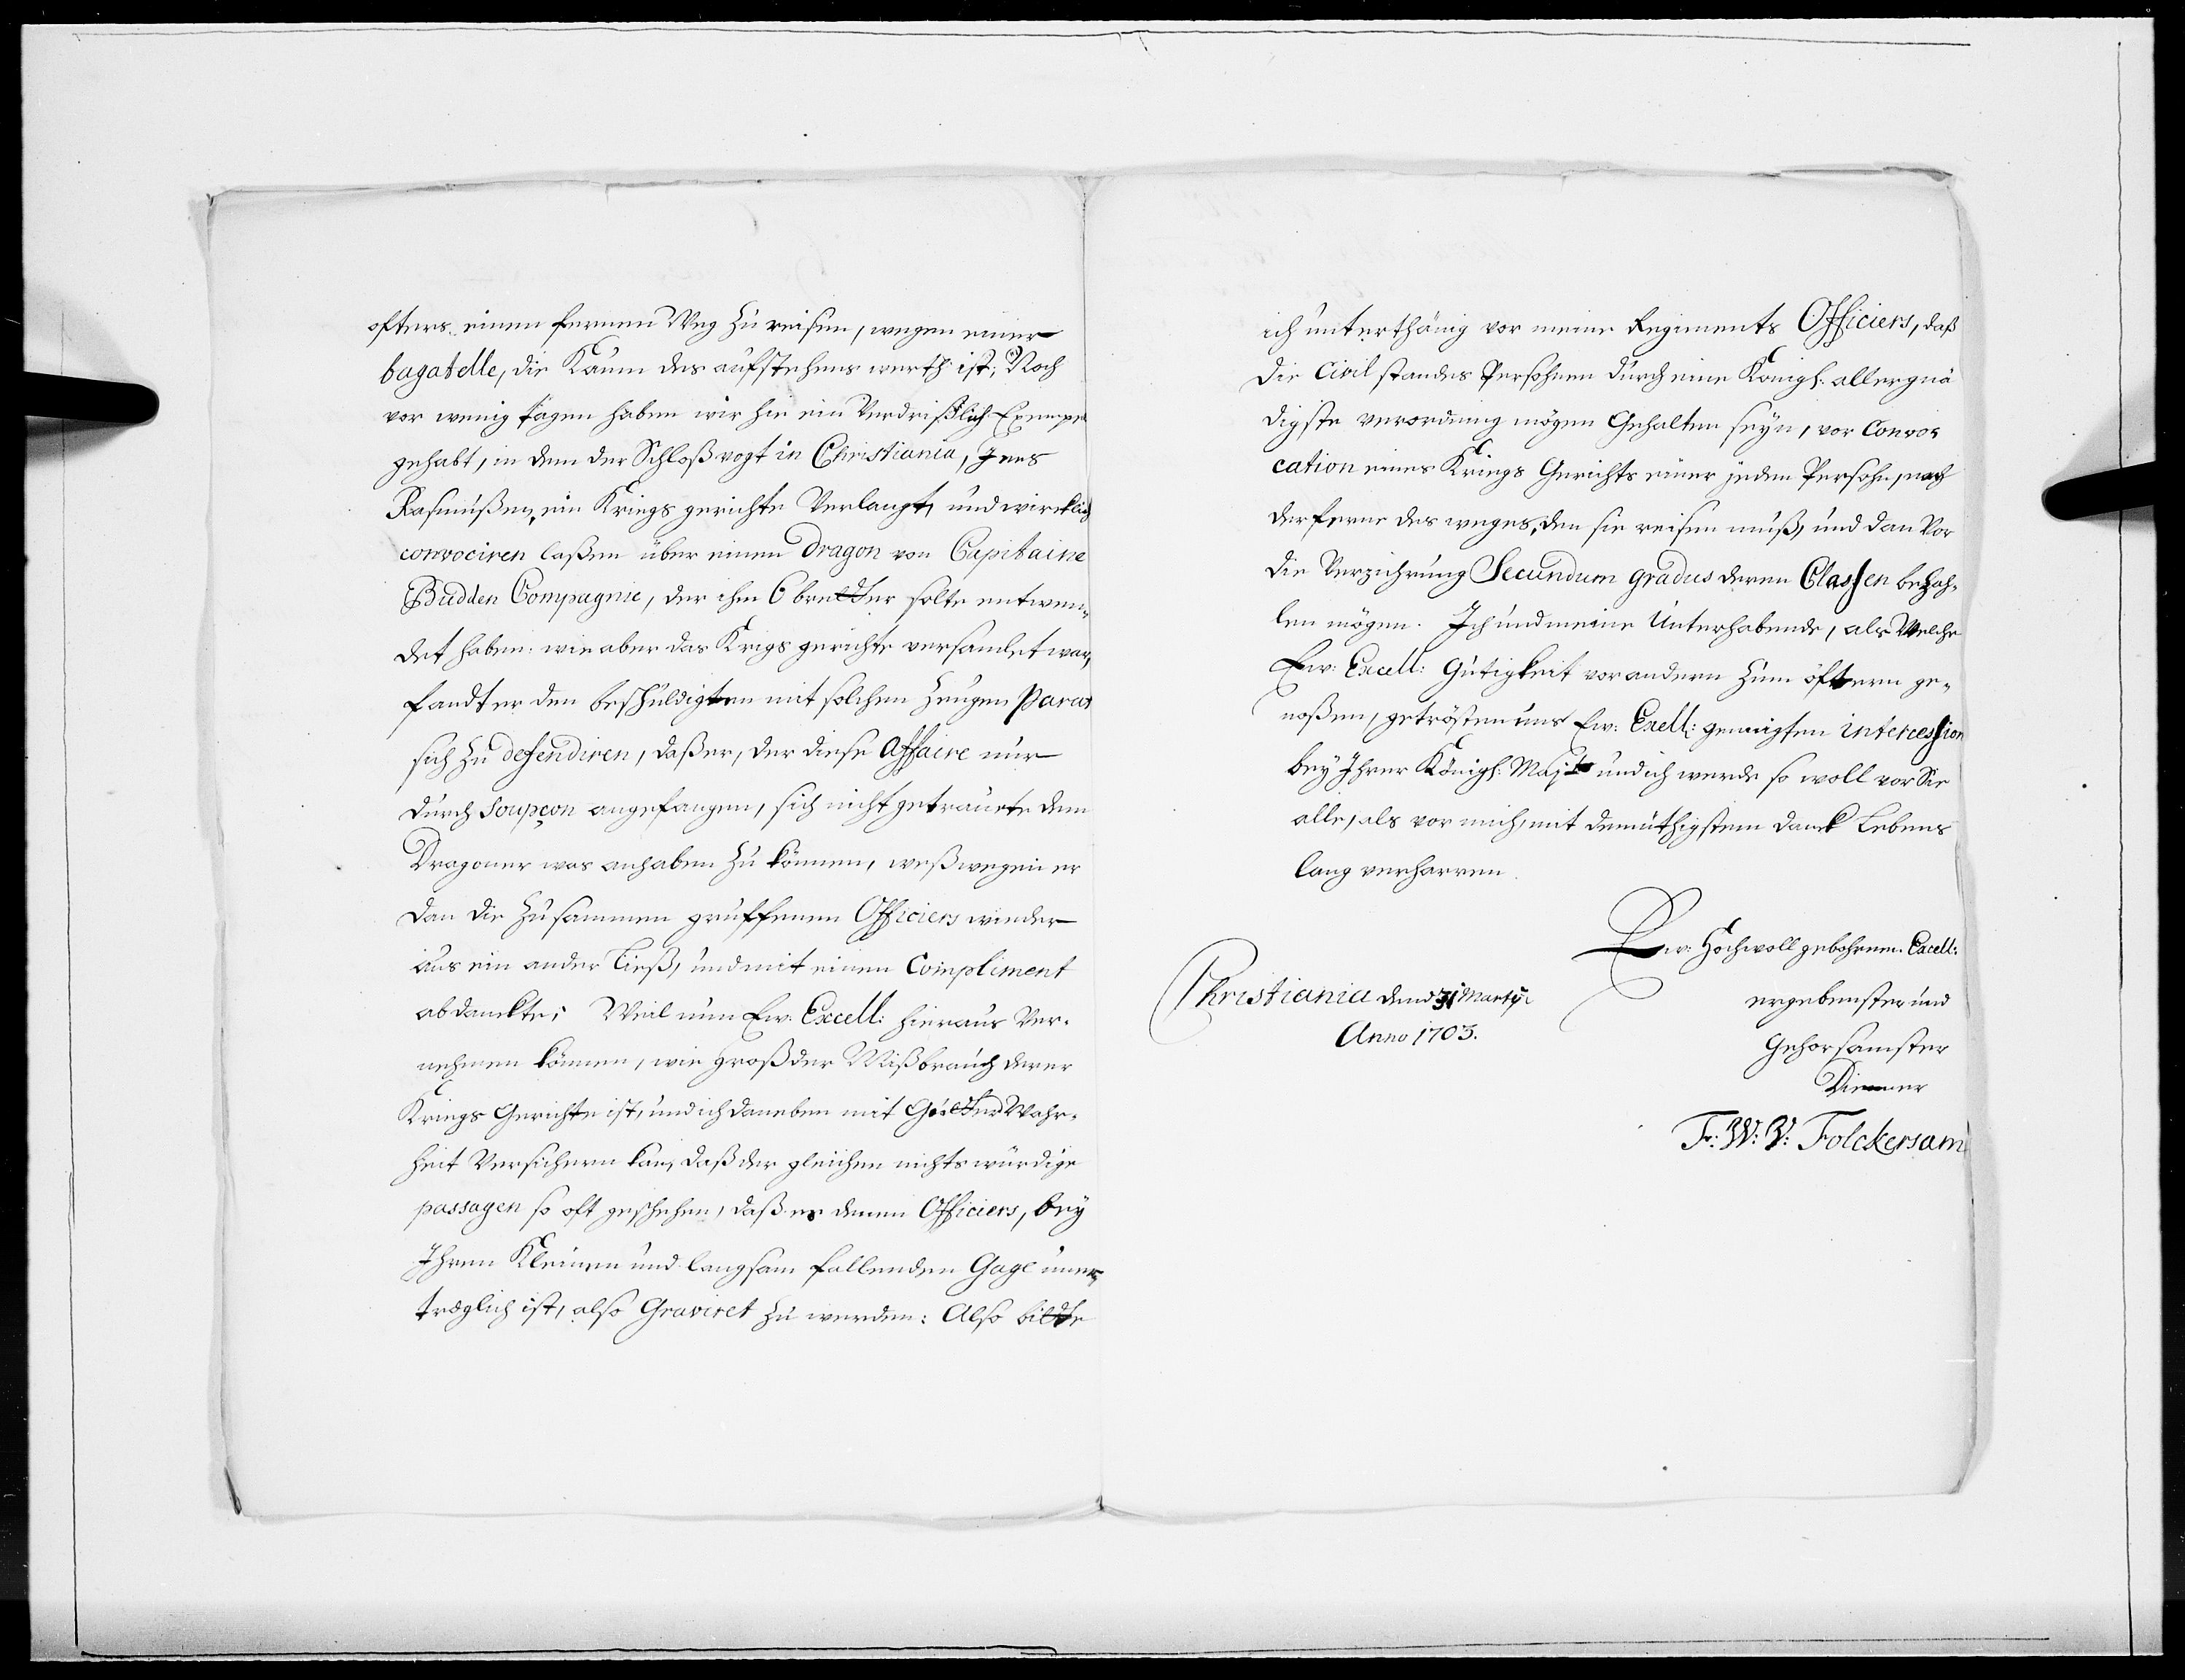 ofters einen fernen Weg zu reisen, wegen einer
bagatelle, die Kaum des aufstehens werth ist; Noch
vor wenig tagen haben wir hie ein Verdrißlich Exempel
gehabt, in dem der Schloßvogt in Christiania, Jens
Rasmußen, ein Kriegs gerichte Verlangt, und wircklich
convociren laßen über einen Dragon von Capitaine
Budden Compagnie, der ihm 6 bretter solte entwen¬
det haben: wie aber das Krigs gerichte versamlet war,
fandt er den beschuldigten mit solchen Zeugen parat
sich zu defendiren, daß er, der diese Affaire nur
durch soupçon angefangen, sich nicht getrauete dem
Dragoner was anhaben zu können, weßwegen er
dan die zusammen geruffenen Officiers wieder
aus ein ander Ließ, und mit einen Compliment
abdanckte; Weil nun Ew: Excell: hieraus Ver¬
nehmen können, wie groß der Mißbrauch derer
Kriegs Gerichte ist, und ich daneben mit Guetter Wahr¬
heit Versichern kan, daß der gleichen nichts würdige
passagen so oft geschehen, daß es denen Officiers, bey
Ihren Kleinen und langsam fallenden Gage uner¬
träglich ist, also Graviret zu werden: Also bitte
ich unterthänig vor meine Regiments Officiers, daß
die Civil standes Persohnen durch eine Königl: allergnä
digste verordnung mögen Gehalten seyn, vor Convo¬
cation eines Kriegs Gerichts einer jeden Persohn, nach
der ferne des weges, den sie reisen muß, und dan Vor
die Verzehrung Secundum gradus deren Classen bezah¬
len mögen. Ich und meine Unterhabende, als Welche
Ew: Excell: Gütigkeit vor andern zum öftern ge¬
noßen, getrösten uns Ew: Exell: geneigten intercession
bey Ihrer Königl: Majtt und ich werde so woll vor Sie
alle, als vor mich, mit demüthigstem danck Lebens
lang verharren.
Ew: Hochwoll gebohrnen Excell:
Christiania dend 31 Martij
Anno 1703.
ergebenster und
Gehorsamster
Diener
F: W: V: Folckersam